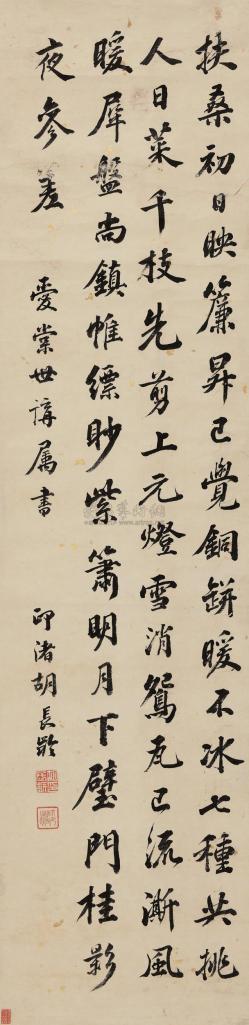 扶桑初日映簾昇已覺銅缾暖不冰七種共挑
人日菜千枝先剪上元燈雪消鴛瓦已流澌風
暖犀盤尚鎮帷縹眇紫簫明月下璧門桂影
夜參差
愛棠世講屬書
印渚胡長齡